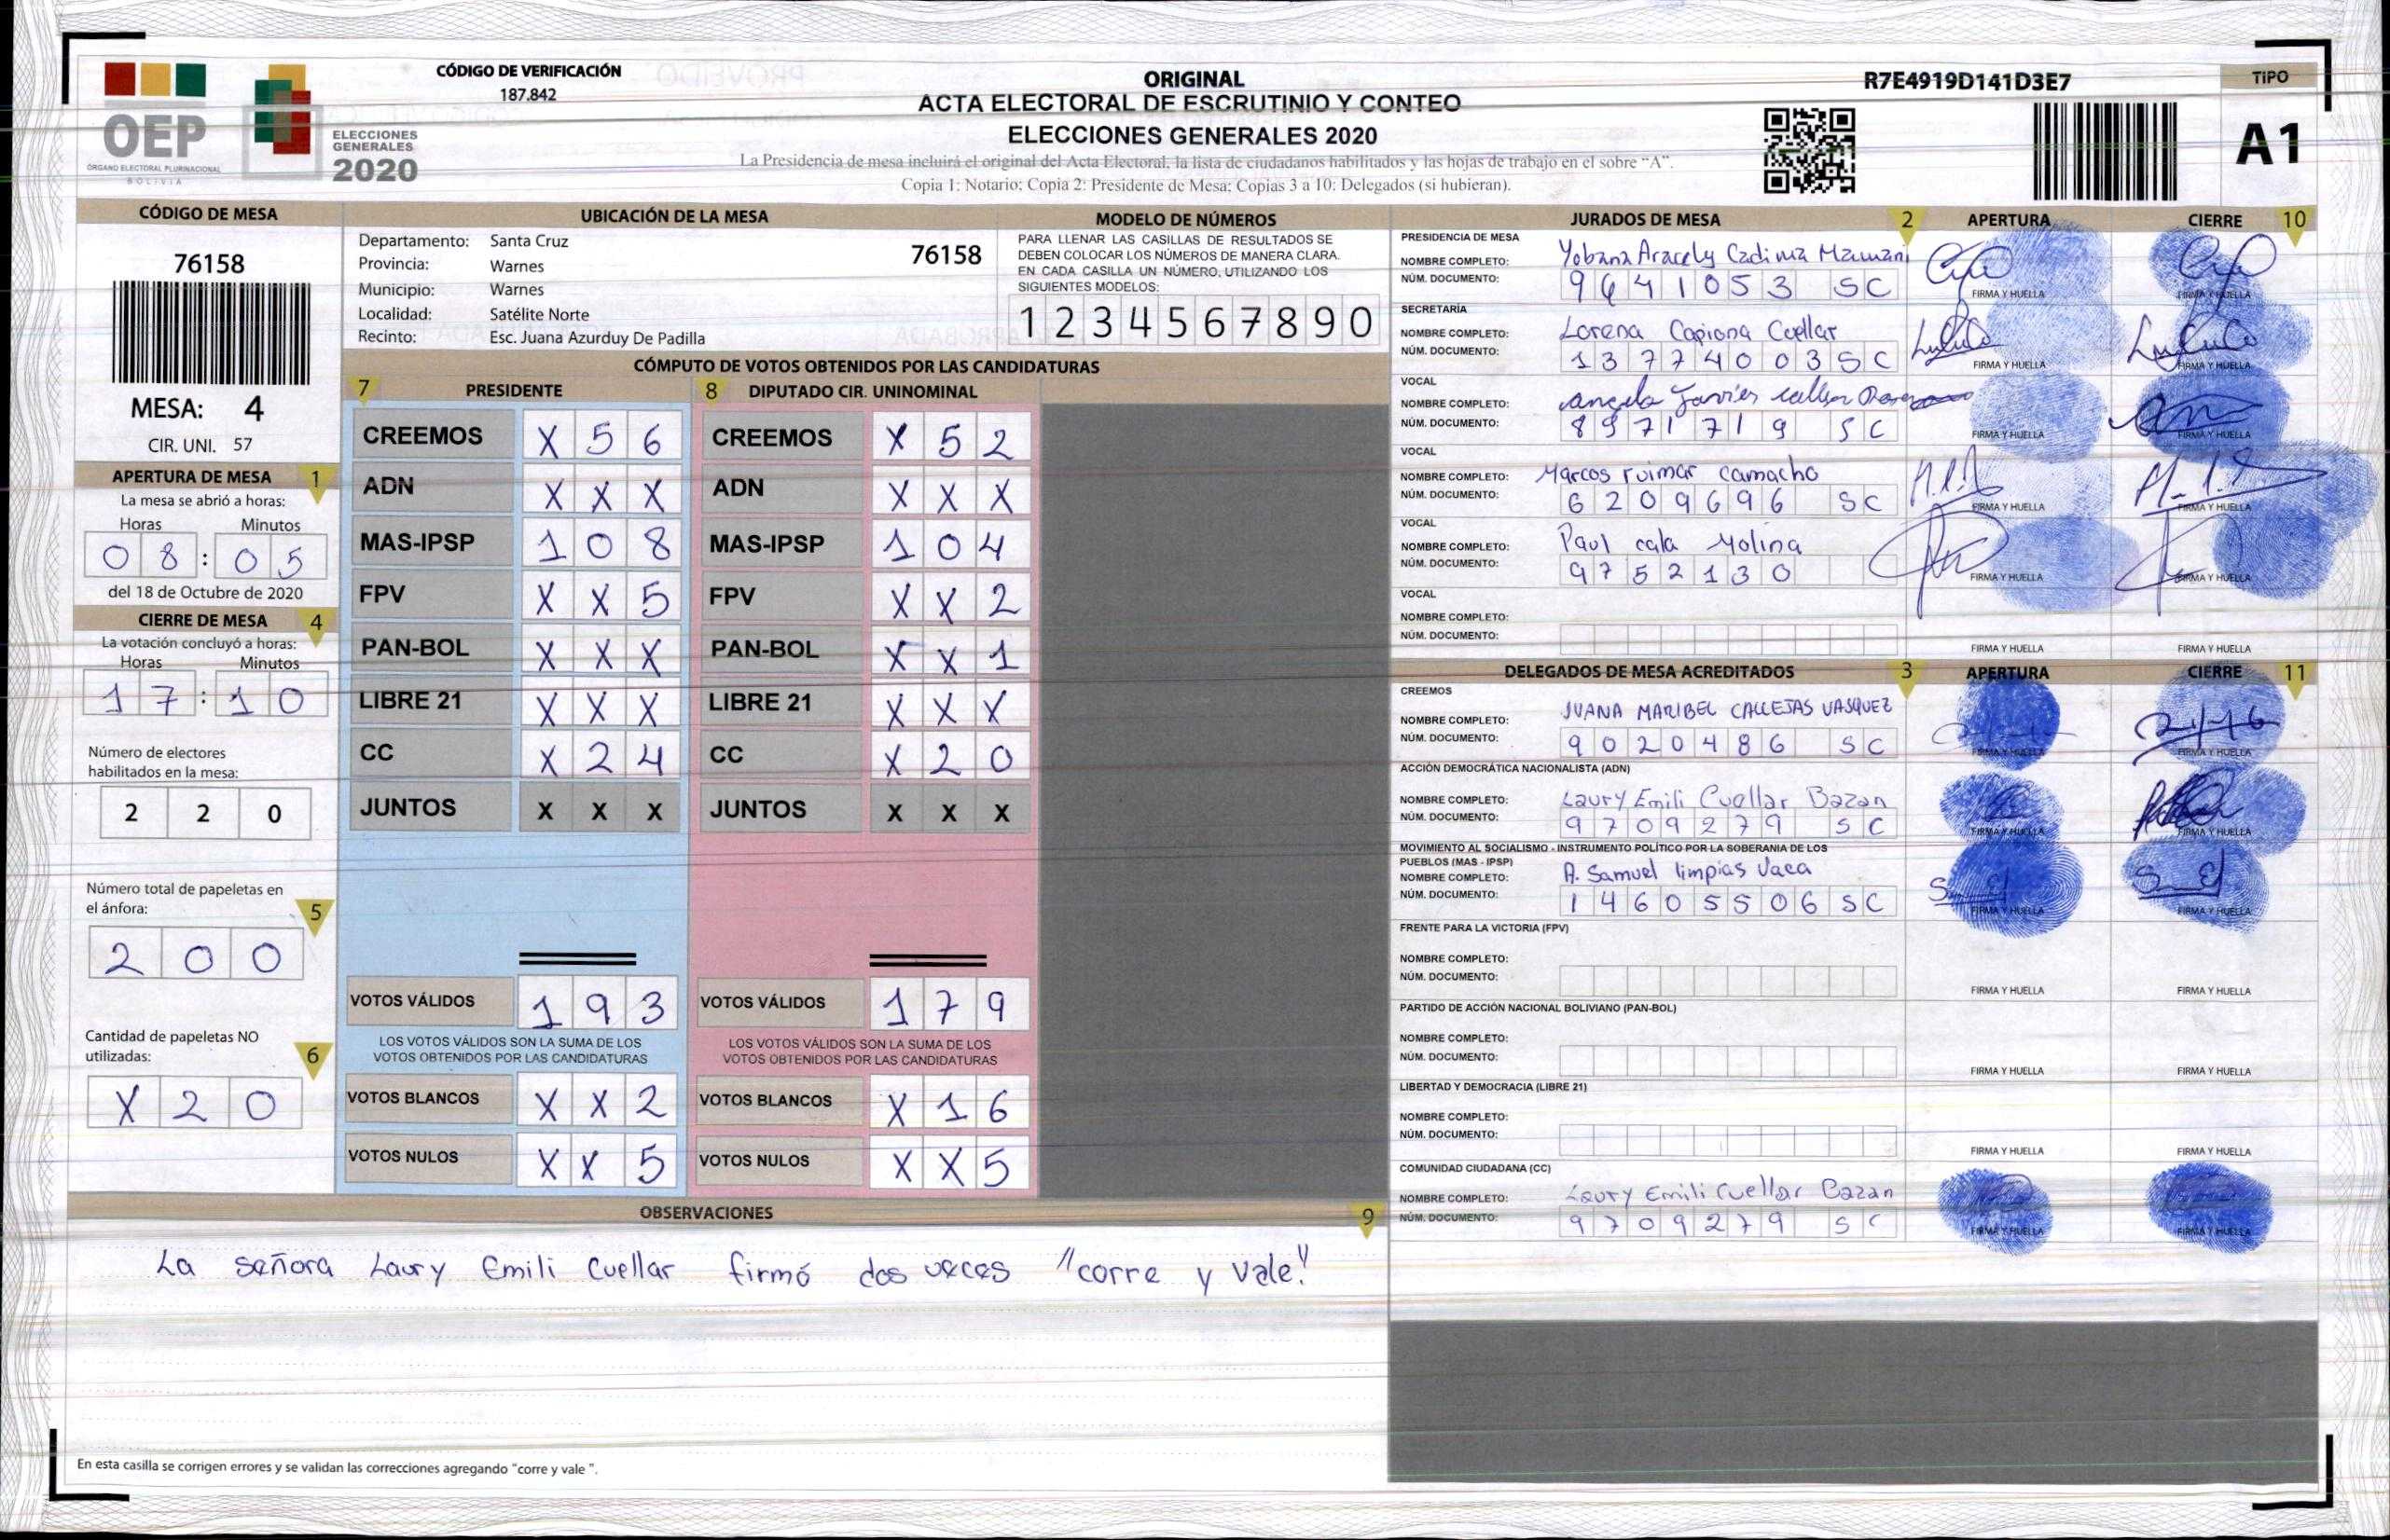 OEP
ÓRGANO ELECTORAL PLURINACIONAL
BOLIVIA
ELECCIONES
GENERALES
2020
CÓDIGO DE VERIFICACIÓN
187.842
ORIGINAL
ACTA ELECTORAL DE ESCRUTINIO Y CONTEO
ELECCIONES GENERALES 2020
La Presidencia de mesa incluirá el original del Acta Electoral, la lista de ciudadanos habilitados y las hojas de trabajo en el sobre “A”.
Copia 1: Notario; Copia 2: Presidente de Mesa; Copias 3 a 10: Delegados (si hubieran).
R7E4919D141D3E7
TIPO
A1
CÓDIGO DE MESA
76158
MESA: 4
CIR. UNI. 57
APERTURA DE MESA 1
La mesa se abrió a horas:
Horas Minutos
0 8 : 0 5
del 18 de Octubre de 2020
CIERRE DE MESA 4
La votación concluyó a horas:
Horas Minutos
1 7 : 1 0
Número de electores
habilitados en la mesa:
2 2 0
Número total de papeletas en
el ánfora: 5
2 0 0
Cantidad de papeletas NO
utilizadas: 6
X 2 0
UBICACIÓN DE LA MESA
Departamento: Santa Cruz 76158
Provincia: Warnes
Municipio: Warnes
Localidad: Satélite Norte
Recinto: Esc. Juana Azurduy De Padilla
MODELO DE NÚMEROS
PARA LLENAR LAS CASILLAS DE RESULTADOS SE
DEBEN COLOCAR LOS NÚMEROS DE MANERA CLARA.
EN CADA CASILLA UN NÚMERO, UTILIZANDO LOS
SIGUIENTES MODELOS:
1 2 3 4 5 6 7 8 9 0
CÓMPUTO DE VOTOS OBTENIDOS POR LAS CANDIDATURAS
7 PRESIDENTE 8 DIPUTADO CIR. UNINOMINAL
CREEMOS X 5 6 CREEMOS X 5 2
ADN X X X ADN X X X
MAS-IPSP 1 0 8 MAS-IPSP 1 0 4
FPV X X 5 FPV X X 2
PAN-BOL X X X PAN-BOL X X 1
LIBRE 21 X X X LIBRE 21 X X X
CC X 2 4 CC X 2 0
JUNTOS X X X JUNTOS X X X
VOTOS VÁLIDOS 1 9 3 VOTOS VÁLIDOS 1 7 9
LOS VOTOS VÁLIDOS SON LA SUMA DE LOS LOS VOTOS VÁLIDOS SON LA SUMA DE LOS
VOTOS OBTENIDOS POR LAS CANDIDATURAS VOTOS OBTENIDOS POR LAS CANDIDATURAS
VOTOS BLANCOS X X 2 VOTOS BLANCOS X 1 6
VOTOS NULOS X X 5 VOTOS NULOS X X 5
OBSERVACIONES 9
La señora Laury Emili Cuellar firmó dos veces "corre y vale"
En esta casilla se corrigen errores y se validan las correcciones agregando "corre y vale ".
JURADOS DE MESA 2 APERTURA CIERRE 10
PRESIDENCIA DE MESA
NOMBRE COMPLETO: Yobana Aracely Cadima Mamani
NÚM. DOCUMENTO: 9641053 SC
FIRMA Y HUELLA FIRMA Y HUELLA
SECRETARÍA
NOMBRE COMPLETO: Lorena Capiona Cuellar
NÚM. DOCUMENTO: 13774003SC
FIRMA Y HUELLA FIRMA Y HUELLA
VOCAL
NOMBRE COMPLETO: Angela Javier
NÚM. DOCUMENTO: 8971719 SC
FIRMA Y HUELLA FIRMA Y HUELLA
VOCAL
NOMBRE COMPLETO: Marcos ruimar camacho
NÚM. DOCUMENTO: 6209696 SC
FIRMA Y HUELLA FIRMA Y HUELLA
VOCAL
NOMBRE COMPLETO: Paul cala Molina
NÚM. DOCUMENTO: 9752130
FIRMA Y HUELLA FIRMA Y HUELLA
VOCAL
NOMBRE COMPLETO:
NÚM. DOCUMENTO:
FIRMA Y HUELLA FIRMA Y HUELLA
DELEGADOS DE MESA ACREDITADOS 3 APERTURA CIERRE 11
CREEMOS
NOMBRE COMPLETO: JUANA MARIBEL CALLEJAS VASQUEZ
NÚM. DOCUMENTO: 9020486 SC
FIRMA Y HUELLA FIRMA Y HUELLA
ACCIÓN DEMOCRÁTICA NACIONALISTA (ADN)
NOMBRE COMPLETO: Laury Emili Cuellar Bazan
NÚM. DOCUMENTO: 9709279 SC
FIRMA Y HUELLA FIRMA Y HUELLA
MOVIMIENTO AL SOCIALISMO - INSTRUMENTO POLÍTICO POR LA SOBERANIA DE LOS
PUEBLOS (MAS - IPSP)
NOMBRE COMPLETO: A. Samuel limpias Vaca
NÚM. DOCUMENTO: 14605506SC
FIRMA Y HUELLA FIRMA Y HUELLA
FRENTE PARA LA VICTORIA (FPV)
NOMBRE COMPLETO:
NÚM. DOCUMENTO:
FIRMA Y HUELLA FIRMA Y HUELLA
PARTIDO DE ACCIÓN NACIONAL BOLIVIANO (PAN-BOL)
NOMBRE COMPLETO:
NÚM. DOCUMENTO:
FIRMA Y HUELLA FIRMA Y HUELLA
LIBERTAD Y DEMOCRACIA (LIBRE 21)
NOMBRE COMPLETO:
NÚM. DOCUMENTO:
FIRMA Y HUELLA FIRMA Y HUELLA
COMUNIDAD CIUDADANA (CC)
NOMBRE COMPLETO: Laury Emili Cuellar Bazan
NÚM. DOCUMENTO: 9709279 SC
FIRMA Y HUELLA FIRMA Y HUELLA